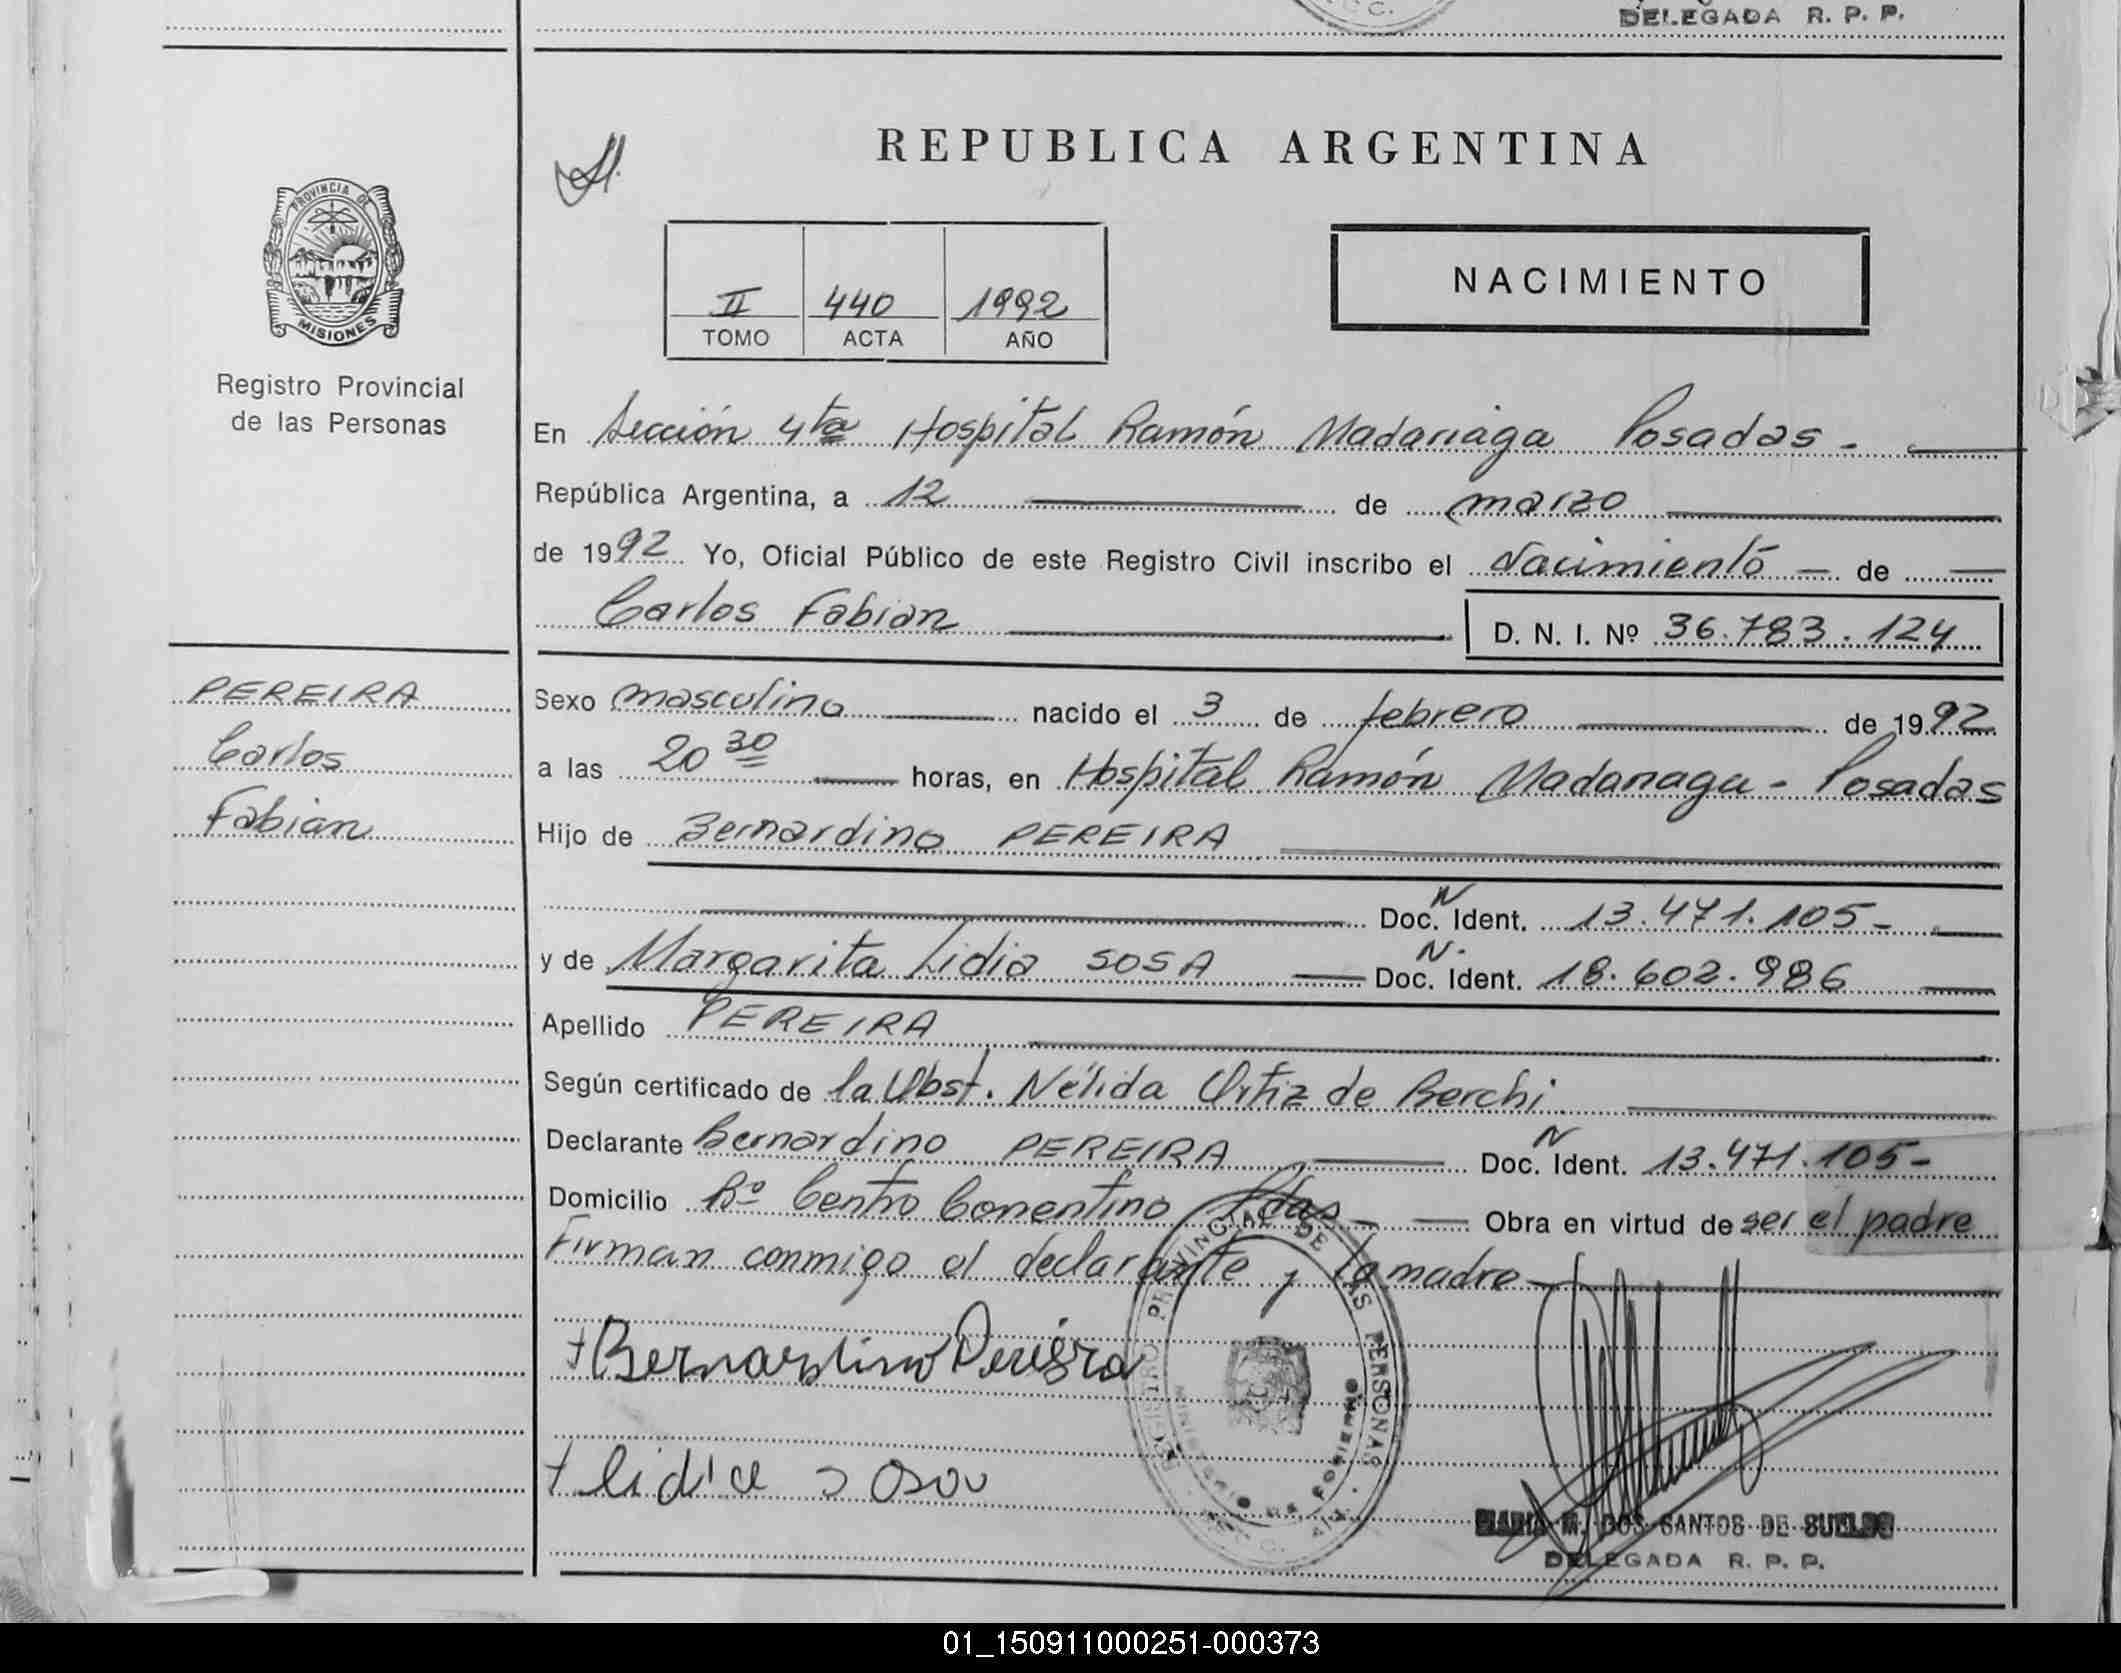 DELEGADA R. P. P.
REPUBLICA ARGENTINA
PROVINCIA DE
MISIONES
Registro Provincial
de las Personas
NACIMIENTO
II 440 1992
TOMO ACTA AÑO
En Sección 4ta Hospital Ramón Madariaga Posadas -
República Argentina, a 12 de marzo
de 1992 Yo, Oficial Público de este Registro Civil inscribo el Nacimiento - de
Carlos Fabian D. N. I. Nº 36.783.124
PEREIRA
Carlos
Fabian
Sexo masculino nacido el 3 de febrero de 1992
a las 20 30 horas, en Hospital Ramón Madariaga - Posadas
Hijo de Bernardino PEREIRA
N
Doc. Ident. 13.471.105-
y de Margarita Lidia SOSA N. Doc. Ident. 18.602.986
Apellido PEREIRA
Según certificado de la Obst. Nélida Ortiz de Berchi
Declarante Bernardino PEREIRA N Doc. Ident. 13.471.105-
Domicilio Bº Centro Correntino Pdas - Obra en virtud de ser el padre
Firman conmigo el declarante y la madre
Bernardino Pereira
Lidia Sosa
REGISTRO PROVINCIAL DE LAS PERSONAS
MINISTERIO DE GOBIERNO
MARIA M. DOS SANTOS DE SUELDO
DELEGADA R. P. P.
01_150911000251-000373